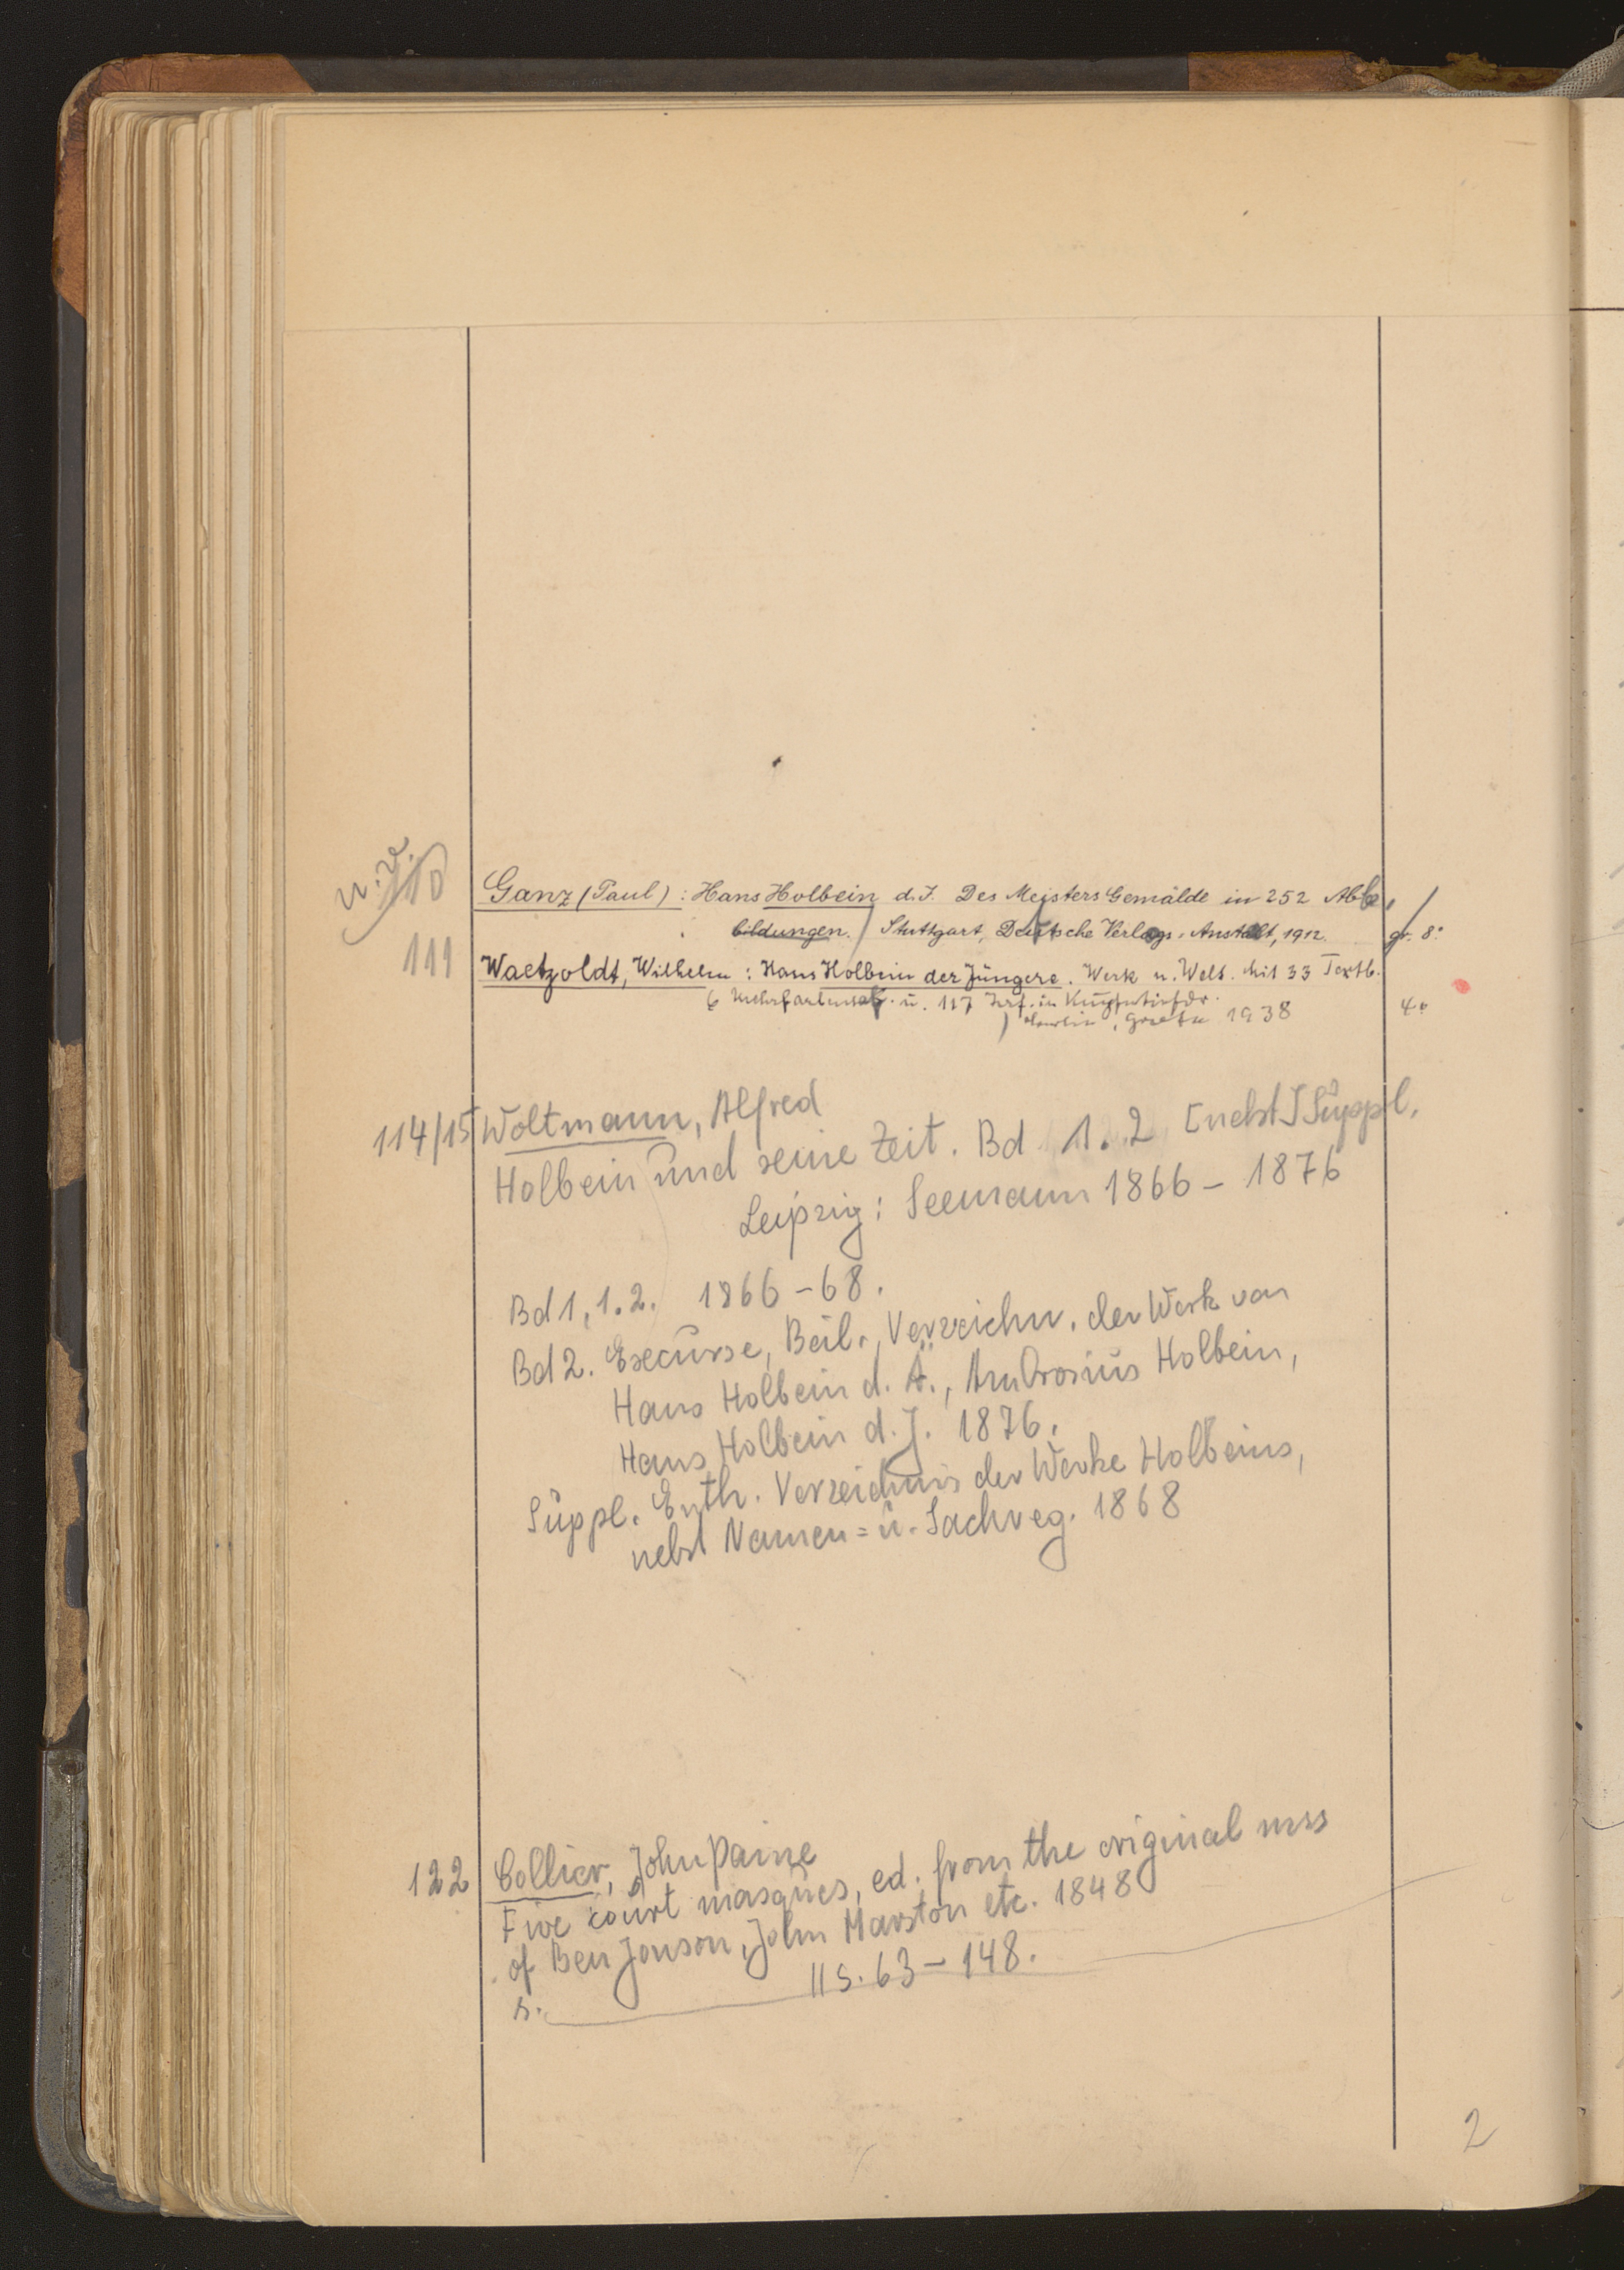 n. v.
110 Ganz (Paul) : Hans Holbein d. J. Des Meisters Gemälde in 252 Abb.
bildungen. / Stuttgart, Deutsche Verlags-Anstalt, 1912. gr. 8°
111 Waetzoldt, Wilhelm : Hans Holbein der Jüngere. Werk u. Welt. Mit 33 Textb.
6 Mehrfarben u. 117 in Kupfertiefdr.
Berlin, Grote 1938 4°
114/15 Woltmann, Alfred
Holbein und seine Zeit. Bd 1. 2 [nebst] Suppl.
Leipzig: Seemann 1866 - 1876
Bd 1, 1. 2. 1866 - 68.
Bd 2. Excurse, Beil., Verzeichn. der Werk von
Hans Holbein d. Ä., Ambrosius Holbein,
Hans Holbein d. J. 1876.
Suppl. Enth. Verzeichnis der Werke Holbeins,
nebst Namen= u. Sachreg. 1868
122 Collier, John Paine
Five court masques, ed. from the original mss
of Ben Jonson, John Marston etc. 1848
s. 11 S. 63 - 148.
2